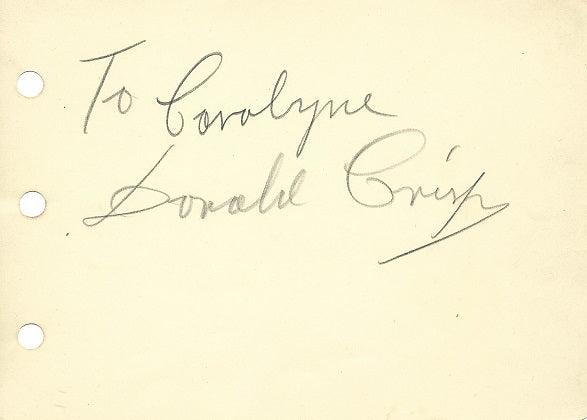 To Carolyne
Donald Crisp